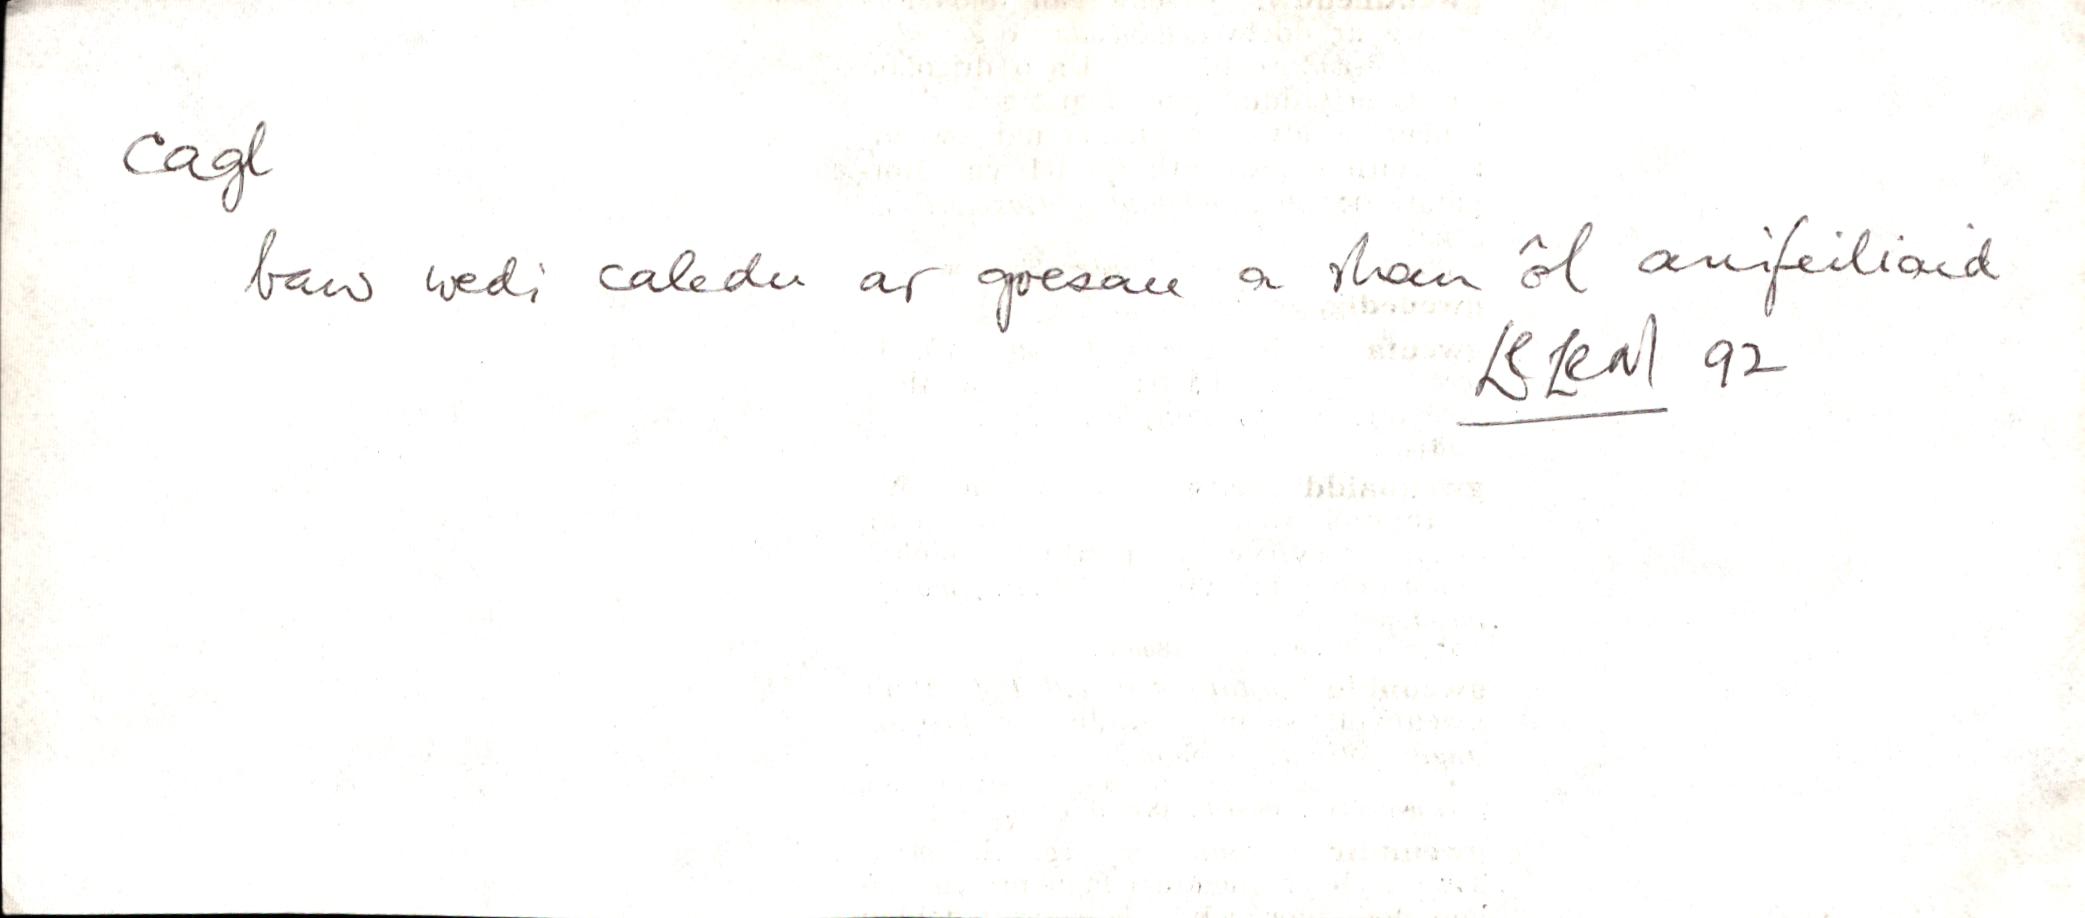 cagl
baw wedi caledu ar goesau a rhan ôl anifeiliaid
92